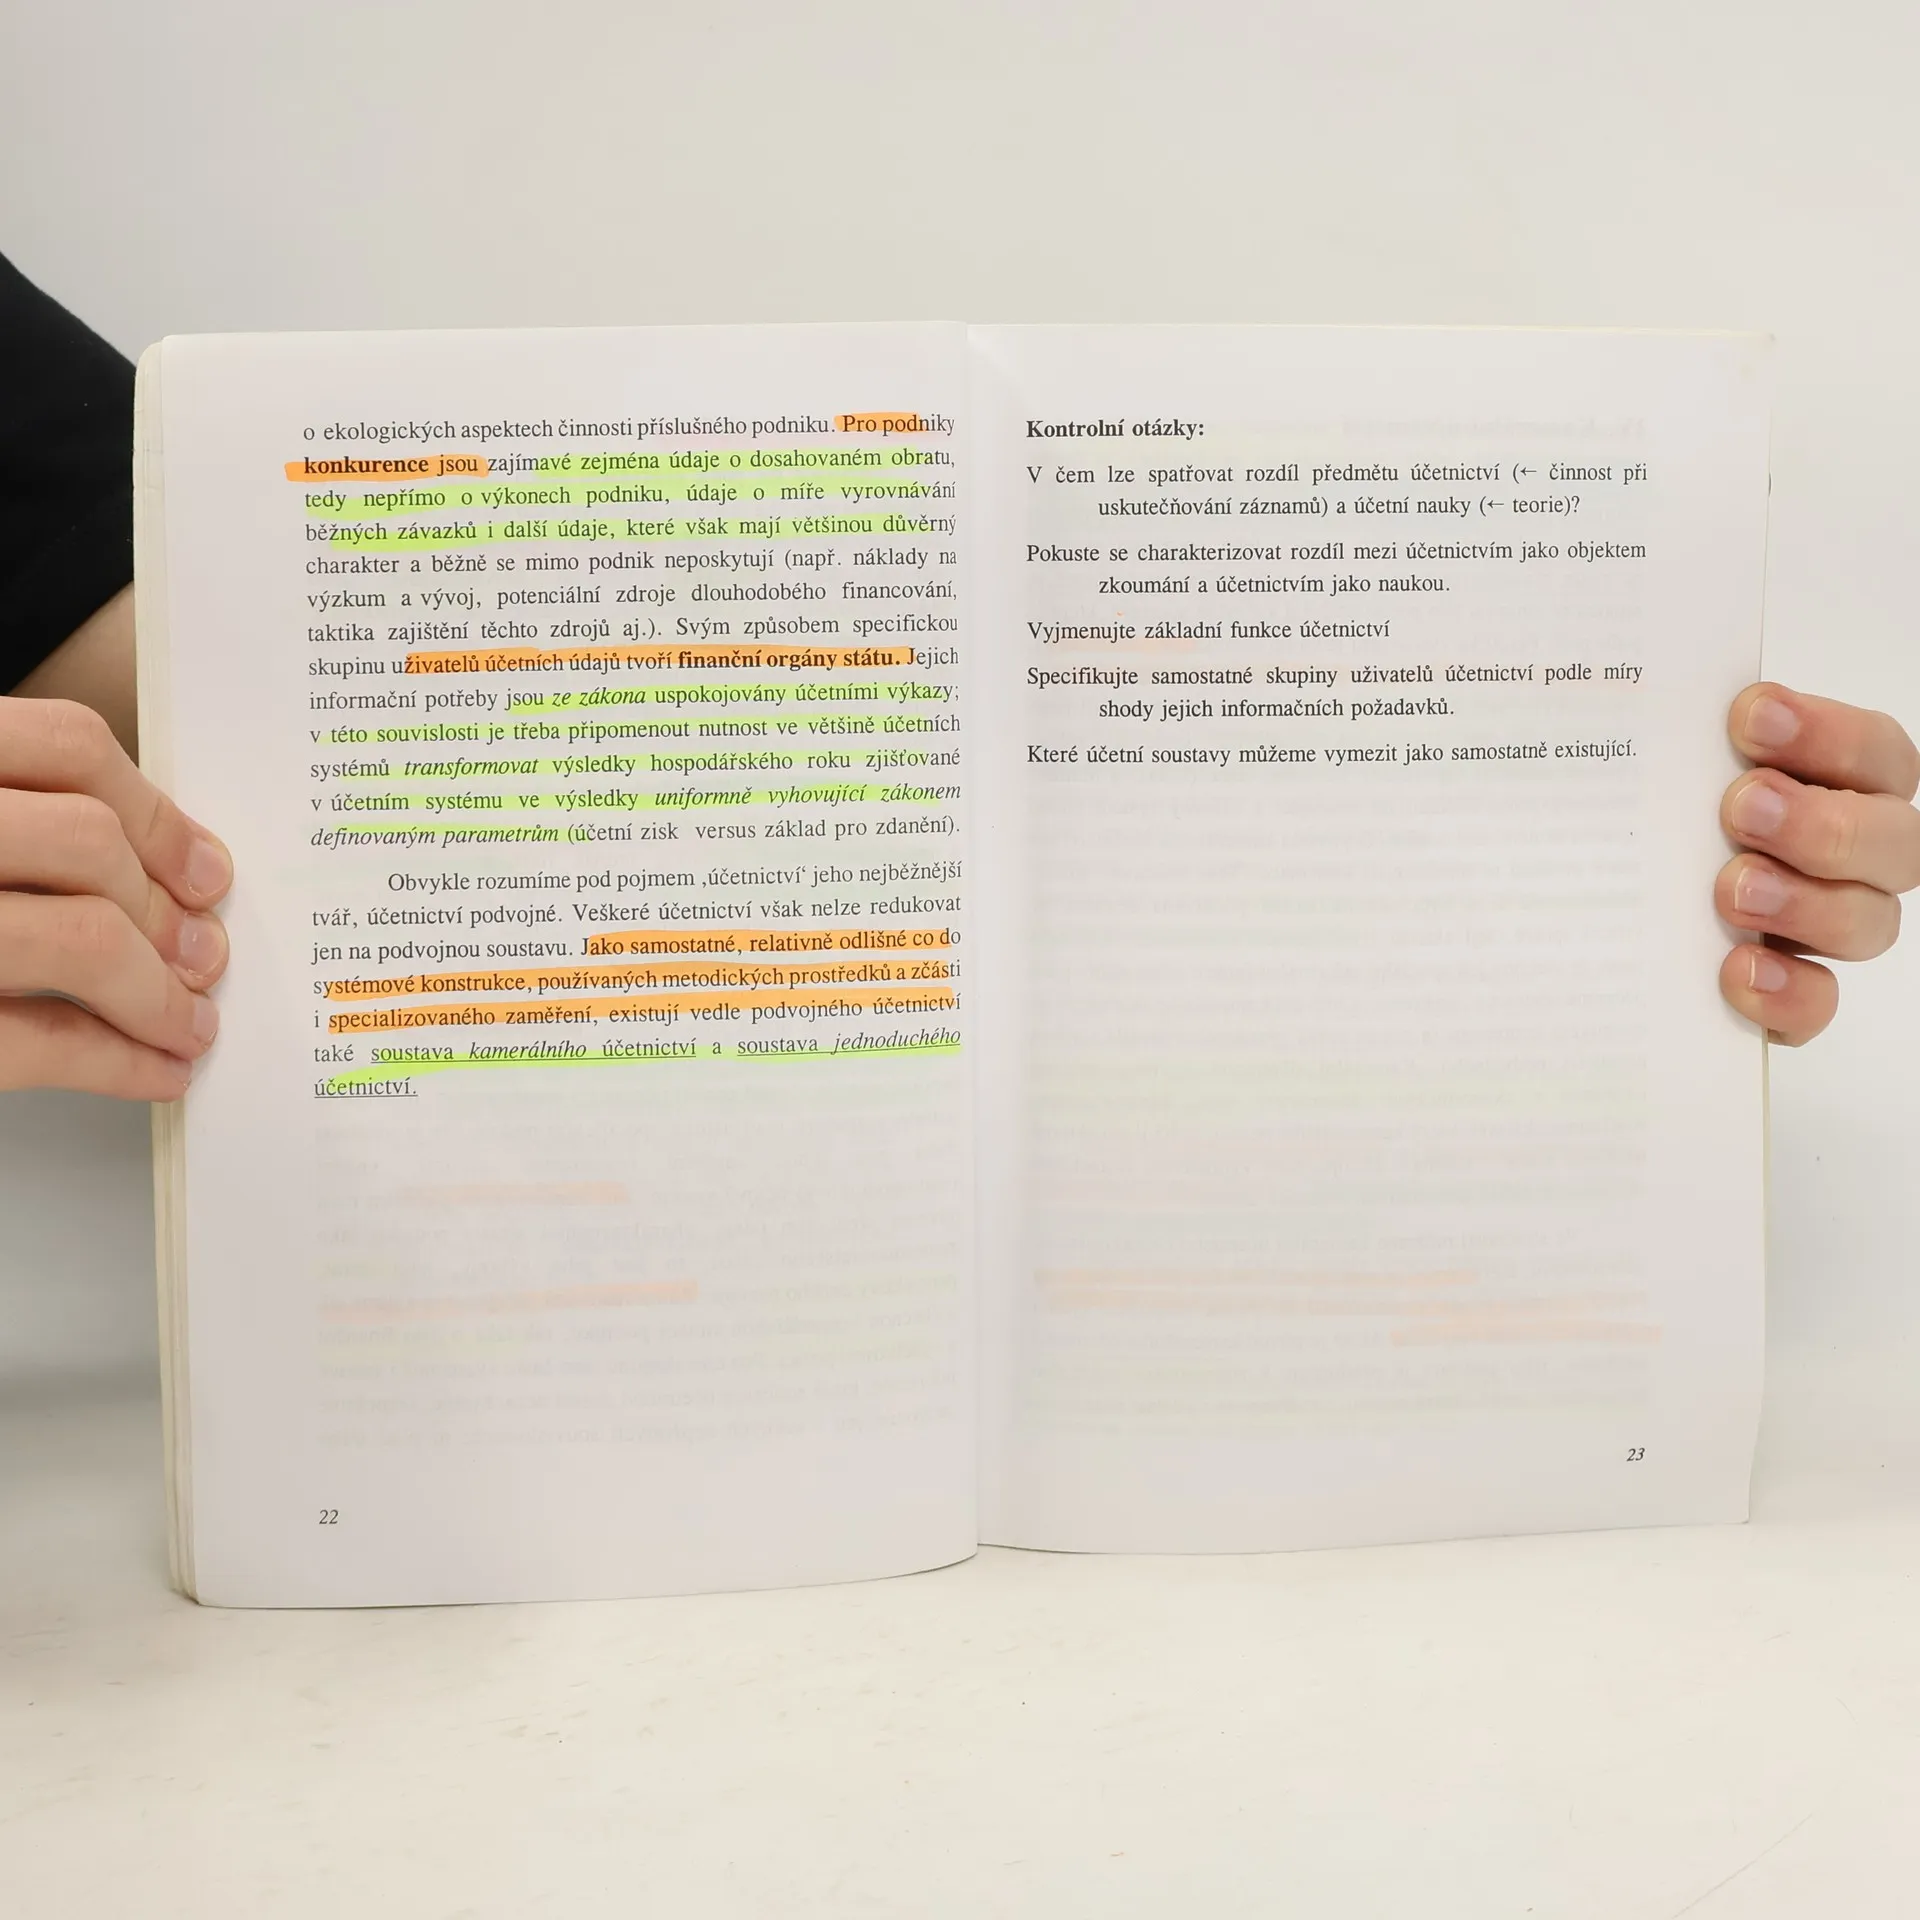 o ekologických aspektech činnosti příslušného podniku. Pro podniky
konkurence jsou zajímavé zejména údaje o dosahovaném obratu,
tedy nepřímo o výkonech podniku, údaje o míře vyrovnávání
běžných závazků i další údaje, které však mají většinou důvěrný
charakter a běžně se mimo podnik neposkytují (např. náklady na
výzkum a vývoj, potenciální zdroje dlouhodobého financování,
taktika zajištění těchto zdrojů aj.). Svým způsobem specifickou
skupinu uživatelů účetních údajů tvoří finanční orgány státu. Jejich
informační potřeby jsou ze zákona uspokojovány účetními výkazy;
v této souvislosti je třeba připomenout nutnost ve většině účetních
systémů transformovat výsledky hospodářského roku zjišťované
v účetním systému ve výsledky uniformně vyhovující zákonem
definovaným parametrům (účetní zisk versus základ pro zdanění).
Obvykle rozumíme pod pojmem ‚účetnictví‘ jeho nejběžnější
tvář, účetnictví podvojné. Veškeré účetnictví však nelze redukovat
jen na podvojnou soustavu. Jako samostatné, relativně odlišné co do
systémové konstrukce, používaných metodických prostředků a zčásti
i specializovaného zaměření, existují vedle podvojného účetnictví
také soustava kamerálního účetnictví a soustava jednoduchého
účetnictví.
22
Kontrolní otázky:
V čem lze spatřovat rozdíl předmětu účetnictví (← činnost při
uskutečňování záznamů) a účetní nauky (← teorie)?
Pokuste se charakterizovat rozdíl mezi účetnictvím jako objektem
zkoumání a účetnictvím jako naukou.
Vyjmenujte základní funkce účetnictví
Specifikujte samostatné skupiny uživatelů účetnictví podle míry
shody jejich informačních požadavků.
Které účetní soustavy můžeme vymezit jako samostatně existující.
23